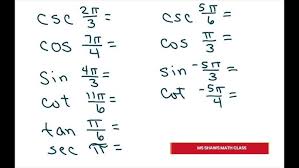 csc 2π/3 =
cos 7π/4 =
sin 4π/3 =
cot 11π/6 =
tan π/6 =
sec π =
csc 5π/6 =
cos π/3 =
sin -5π/3 =
cot -5π/4 =
MS SHAWS MATH CLASS